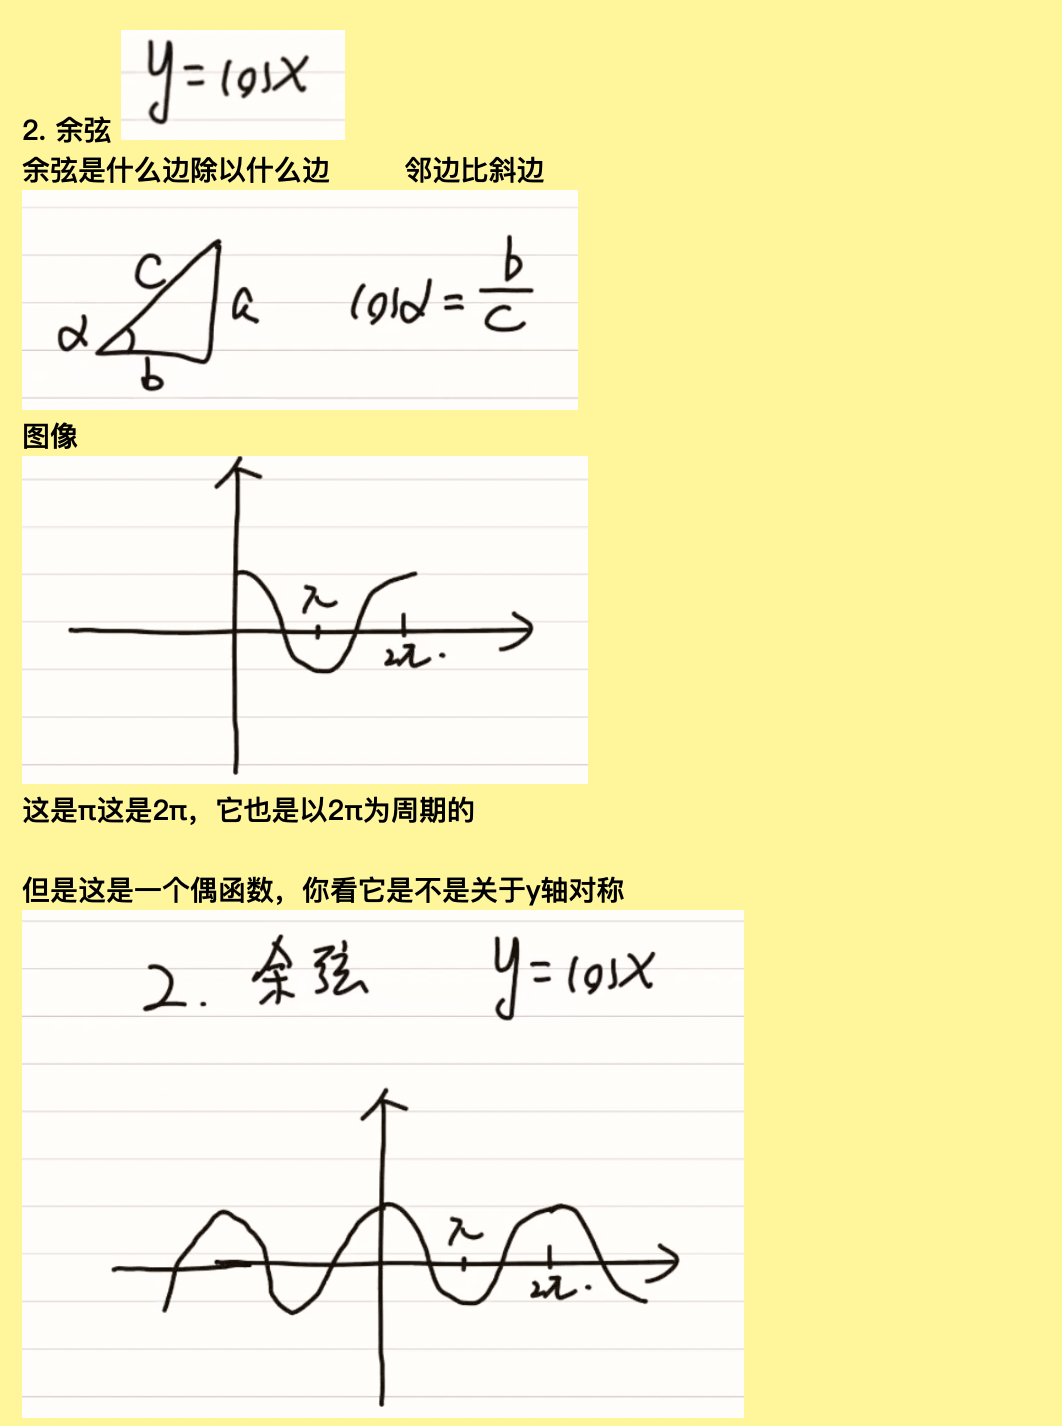 y=cosx
2. 余弦
余弦是什么边除以什么边 邻边比斜边
c
a
α
b
cosα = b/c
图像
π
2π.
这是π这是2π，它也是以2π为周期的
但是这是一个偶函数，你看它是不是关于y轴对称
2. 余弦 y=cosx
π
2π.